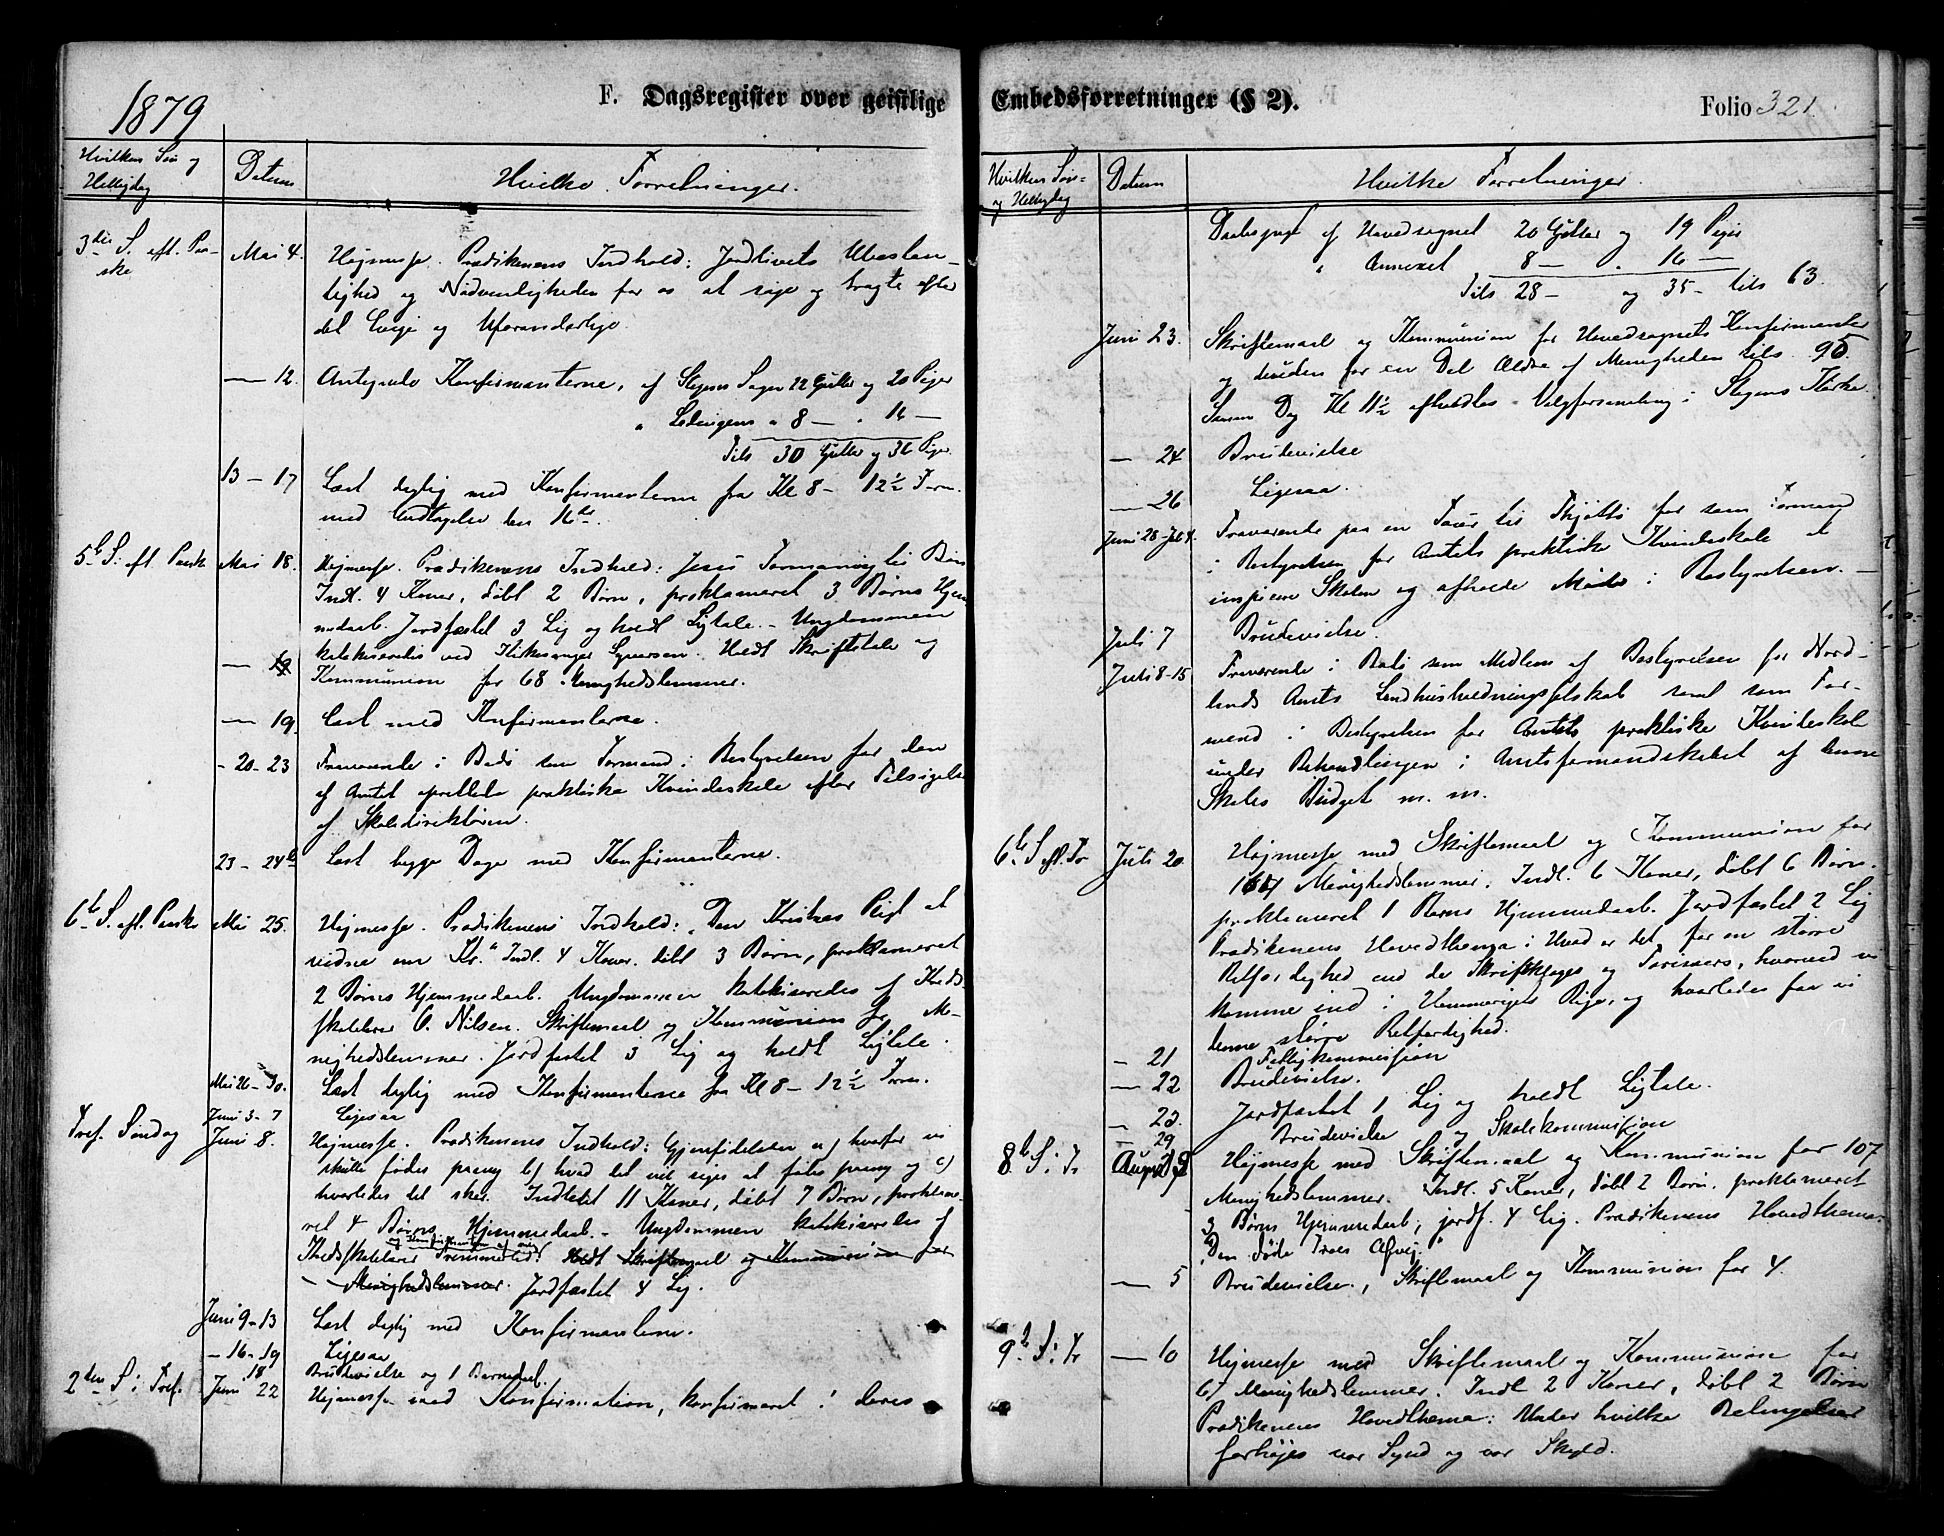 1879
F. Dagsregister over geistlige
Hvilken Søn og Helligdag
Datum
Hvilke Forretninger.
3die S. eft. Paaske
Mai 4.
Højmesse. Prædikenens Indhold: Jordlivets Ubestan-
lighed og Nødvendigheden for os at søge og tragte efter
det Evige og Uforanderlige.
— 12.
Antegnede Konfirmanterne, af Stegens Sogn 22 Gutter og 20 Piger
" Ledingens " 8 — " 16 —
Tils 30 Gutter og 36 Piger.
13 — 17
Læst daglig med Konfirmanterne fra Kl 8 – 12½ Form.
med Undtagelse den 16de.
5te S. eft. Paaske
Mai 18.
Højmesse. Prædikenens Indhold: Jesu Formaning til Bøn
Indl. 4 Koner, døbt 2 Børn, proklameret 3 Børns Hjem
medaab. Jordfæstet 3 Lig og holdt Ligtale. – Ungdommen
katekiseredes ved Kirkesanger Syversen. Holdt Skriftetale og
Kommunion for 68 Menighedslemmer.
— 19.
Læst med Konfirmanterne.
- 20 - 23
Fraværende i Bodø som Formand i Bestyrelsen for den
af Amtet oprettede praktiske Kvindeskole efter Tilsigelse
af Skoledirektøren.
23 – 24de
Læst begge Dage med Konfirmanterne.
6te S. eft. Paaske
Mai 25.
Højmesse. Prædikenens Indhold: "Den Kristnes Pligt at
vidne om Kr." Indl. 4 Koner. døbt 3 Børn, proklameret
2 Børns Hjemmedaab. Ungdommen katekiseredes af Kreds
skolelærer O. Nilsen. Skriftemaal og Kommunion for Me-
nighedslemmer. Jordfæstet 3 Lig og holdt Ligtale.
Mai 26 – 30.
Læst daglig med Konfirmanterne fra Kl 8 – 12½ Form.
Juni 3 - 7
Ligesaa
Tref. Søndag
Juni 8.
Højmesse. Prædikenens Indhold: Gjenfødelsen a) hvorfor vi
skulle fødes paany b) hvad det vil sige at fødes paany og c)
hvorledes det sker. Indledet 11 Koner, døbt 7 Børn, proklame-
ret 4 Børns Hjemmedaab. – Ungdommen katekiseredes af
Kredsskolelærer Holdt Skriftemaal og Kommunion for
— Menighedslemmer. Jordfæstet 4 Lig.
Juni 9 – 13
Læst daglig med Konfirmanterne.
- 16 - 19
Ligesaa
18
Brudevielse og 1 Barnedaab.
2den S. i Tref.
Juni 22
Højmesse med Konfirmation, konfirmeret i deres
Embedsforretninger (§ 2).
Folio 321.
Hvilken Søn- og Helligdag
Datum
Hvilke Forretninger.
Daabspagt af Hovedsognet 20 Gutter og 19 Piger
" Annexet 8 — " 16 —
Tils 28 — og 35 — tils 63.
Juni 23.
Skriftemaal og Kommunion for Hovedsognets Konfirmanter
og desuden for en Del Ældre af Menigheden tils. 95.
Samme Dag Kl 11½ afholdtes Valgforsamling i Stegens Kirke.
— 24
Brudevielse
— 26
Ligesaa.
Juni 28 - Juli 4.
Fraværende paa en Tour til Tjøttø for som Formand
i Bestyrelsen for Amtets praktiske Kvindeskole at
inspicere Skolen og afholde Møde i Bestyrelsen. —
Juli 7
Brudevielse.
Juli 8 - 15
Fraværende i Bodø som Medlem af Bestyrelsen for Nord-
lands Amts Landhusholdningsselskab samt som For-
mand i Bestyrelsen for Amtets praktiske Kvindeskole
under Behandlingen i Amtsformandskabet af denne
Skoles Budget m. m.
6te S. eft. Tr
Juli 20.
Højmesse med Skriftemaal og Kommunion for
Menighedslemmer. Indl. 6 Koner, døbt 6 Børn.
proklameret 1 Barns Hjemmedaab. Jordfæstet 2 Lig
Prædikenens Hovedthema: Hvad er det for en større
Retfærdighed end de Skriftkloges og Farisæers, hvorved vi
komme ind i Himmeriges Rige, og hvorledes faa vi
denne større Retfærdighed.
— 21
Fattigkommission
— 22
Brudevielse.
— 23.
Jordfæstet 1 Lig og holdt Ligtale.
— 29
Brudevielse og Skolekommission
8de S. i Tr
August 3
Højmesse med Skriftemaal og Kommunion for 107
Menighedslemmer. Indl. 5 Koner, døbt 2 Børn. proklameret
3 Børns Hjemmedaab, jordf. 4 Lig. Prædikenens Hovedthema:
"Den døde Troes Afvej."
— 5
Brudevielse, Skriftemaal og Kommunion for 4.
9de S. i Tr
— 10
Højmesse med Skriftemaal og Kommunion for
67 Menighedslemmer. Indl 2 Koner, døbt 2 Børn
Prædikenens Hovedthema: Under hvilke Betingelser
forhøjes vor Synd og vor Skyld.